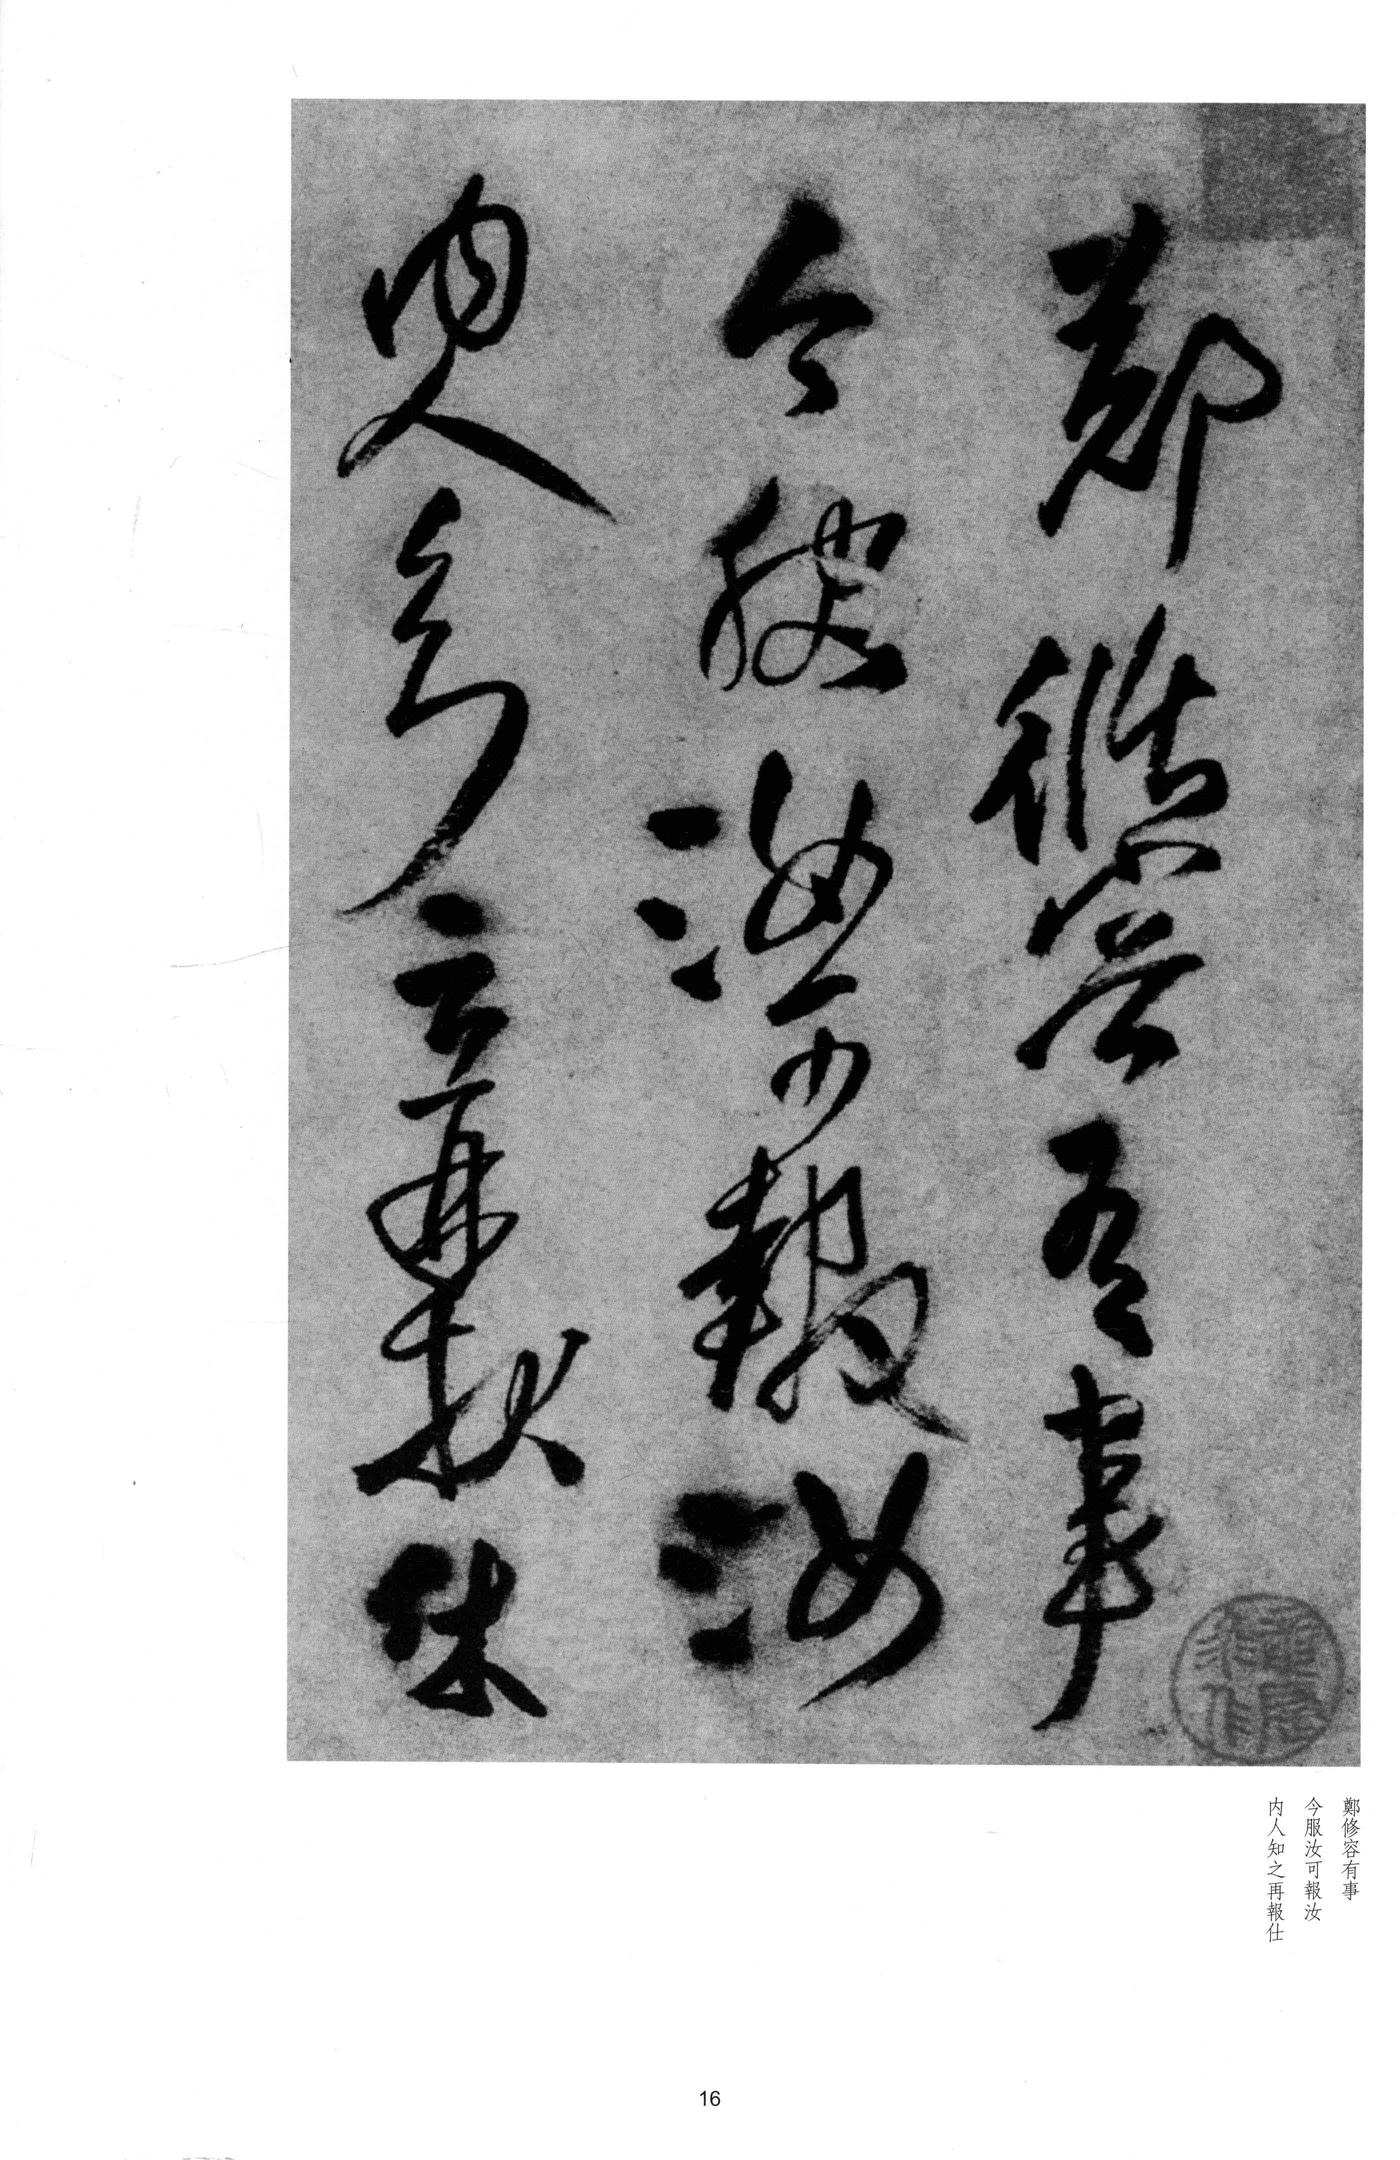 鄭修容有事
今服汝可報汝
内人知之再報仕
鄭修容有事
今服汝可報汝
内人知之再報仕
16